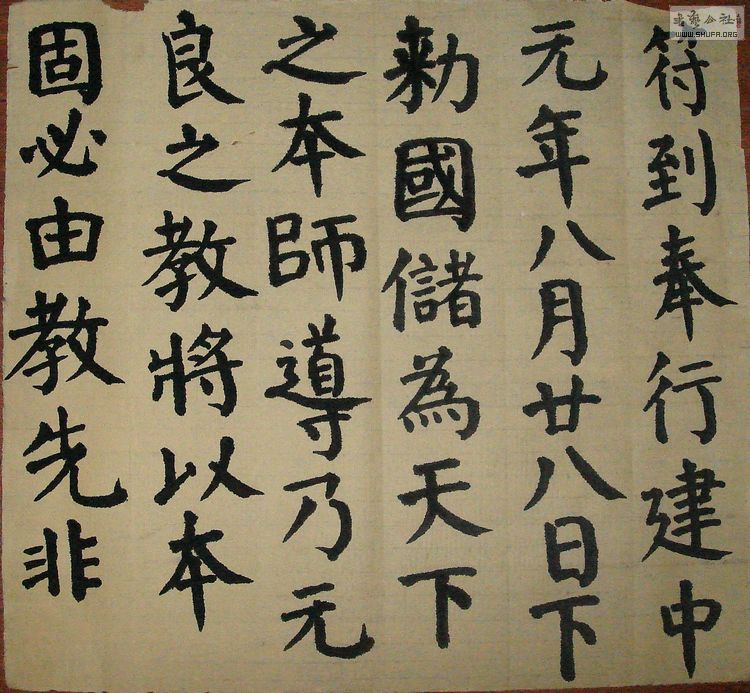 符到奉行建中
元年八月廿八日下
勑國儲為天下
之本師導乃元
良之教將以本
固必由教先非
書藝公社
WWW.SHUFA.ORG